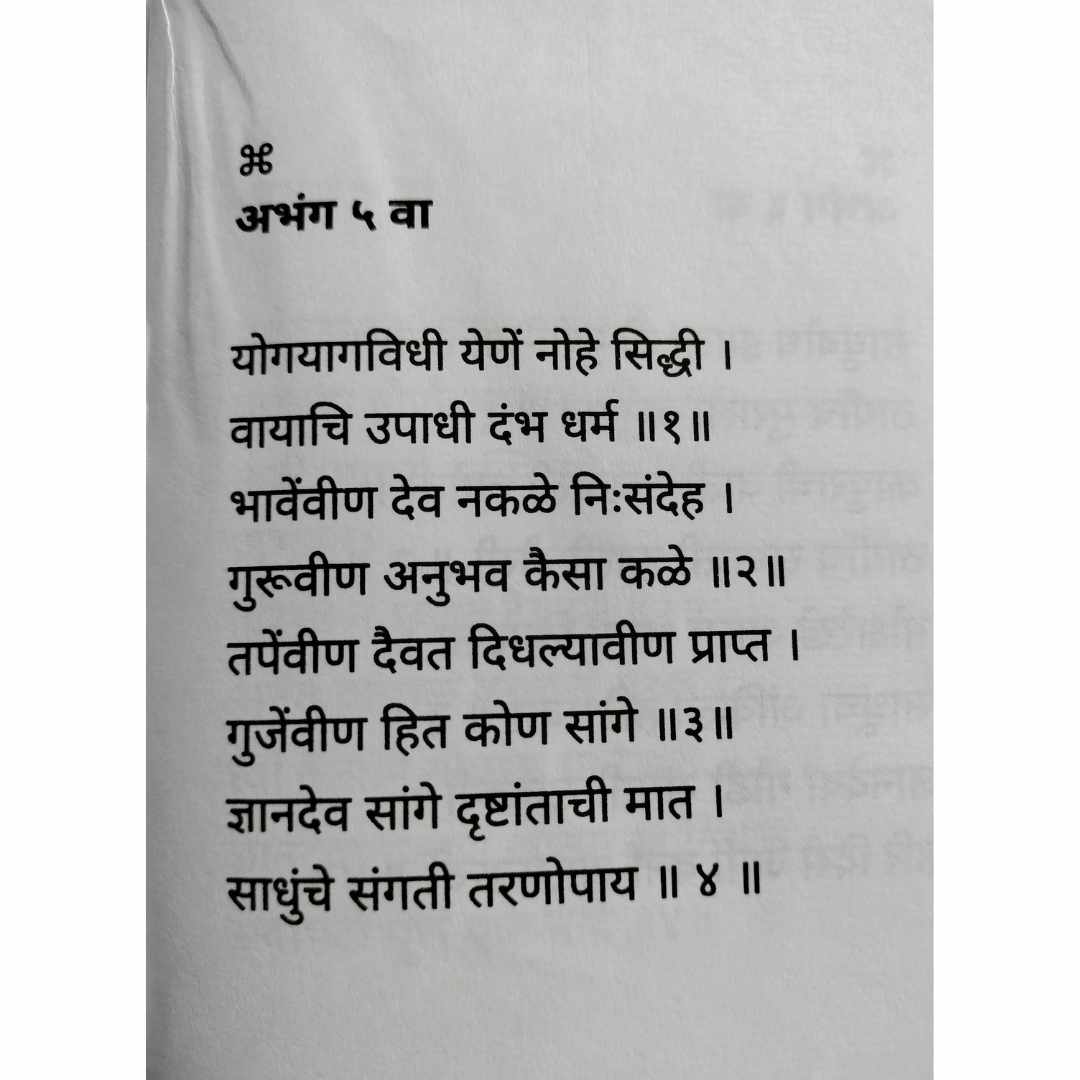 ⌘
अभंग ५ वा
योगयागविधी येणें नोहे सिद्धी ।
वायाचि उपाधी दंभ धर्म ॥१॥
भावेंवीण देव नकळे निःसंदेह ।
गुरूवीण अनुभव कैसा कळे ॥२॥
तपेंवीण दैवत दिधल्यावीण प्राप्त ।
गुजेंवीण हित कोण सांगे ॥३॥
ज्ञानदेव सांगे दृष्टांताची मात ।
साधुंचे संगती तरणोपाय ॥ ४ ॥